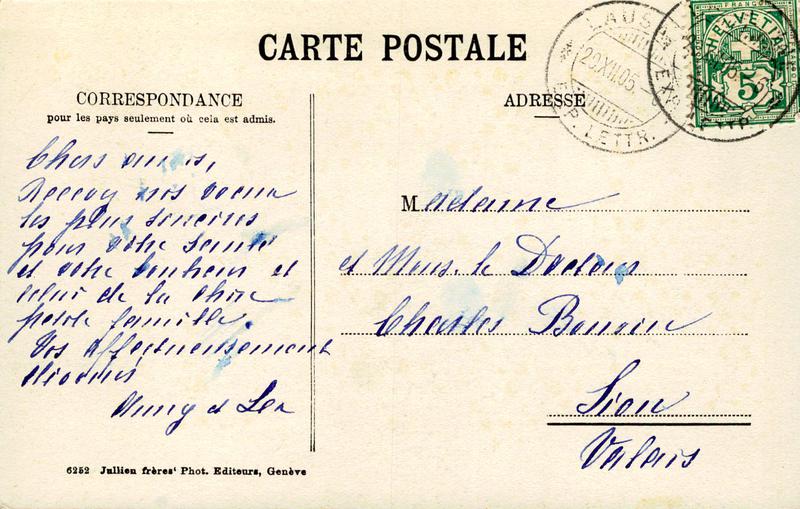 CARTE POSTALE
CORRESPONDANCE
pour les pays seulement où cela est admis.
ADRESSE
LAUS
29.XII.05.
EXP. LETTR.
HELVETIA
FRANCO
5
Chers amis,
nos voeux
les plus sincères
pour votre santé
et votre bonheur et
celui de la chère
petite famille.
Vos affectueusement
et Léa
Madame
et Mons. le Docteur
Charles Bonvin
Sion
Valais
6252 Jullien frères' Phot. Editeurs, Genève